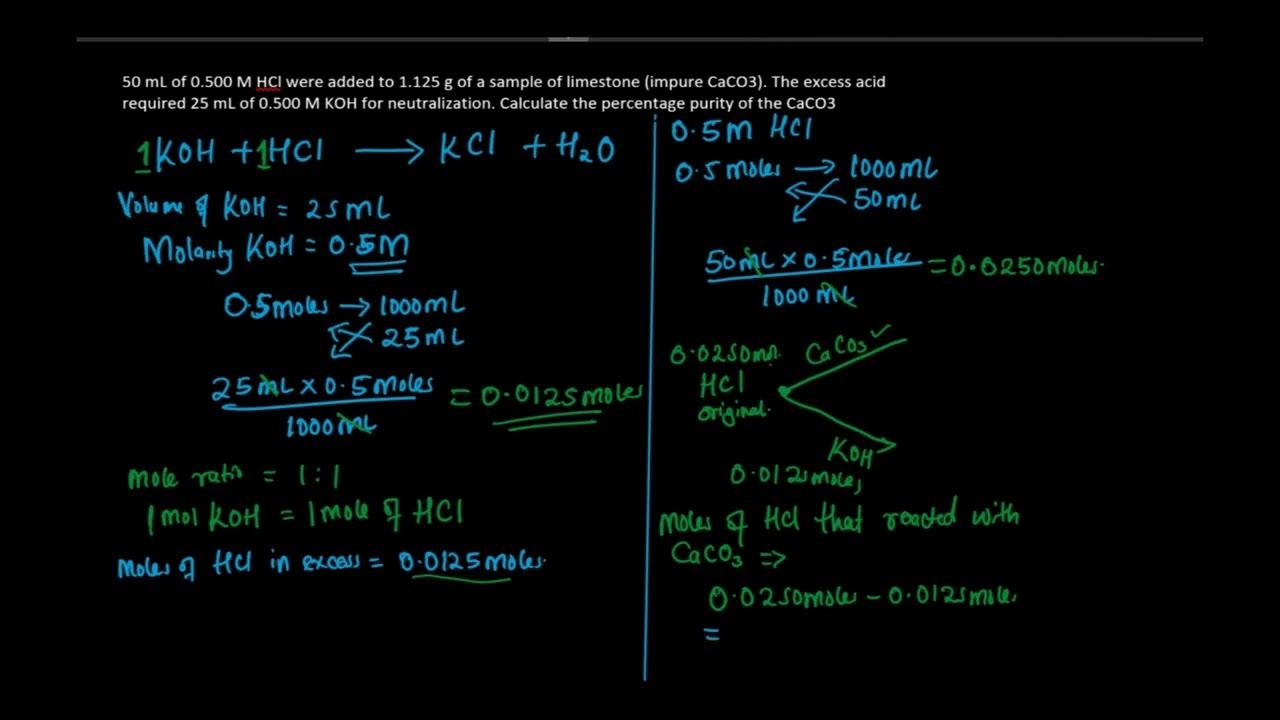 50 mL of 0.500 M HCl were added to 1.125 g of a sample of limestone (impure CaCO3). The excess acid
required 25 mL of 0.500 M KOH for neutralization. Calculate the percentage purity of the CaCO3
1KOH + 1HCl → KCl + H₂O
Volume of KOH = 25mL
Molarity KOH = 0.5M
0.5moles → 1000mL
25mL
25mL × 0.5moles
1000mL
= 0.0125moles
Mole ratio = 1:1
1mol KOH = 1mole of HCl
Moles of HCl in excess = 0.0125moles.
0.5M HCl
0.5moles → 1000mL
50mL
50mL × 0.5moles
1000mL
= 0.0250moles.
0.0250m. CaCO₃ ✓
HCl
original.
KOH
0.0125moles
Moles of HCl that reacted with
CaCO₃ ⇒
0.0250moles – 0.0125moles
=